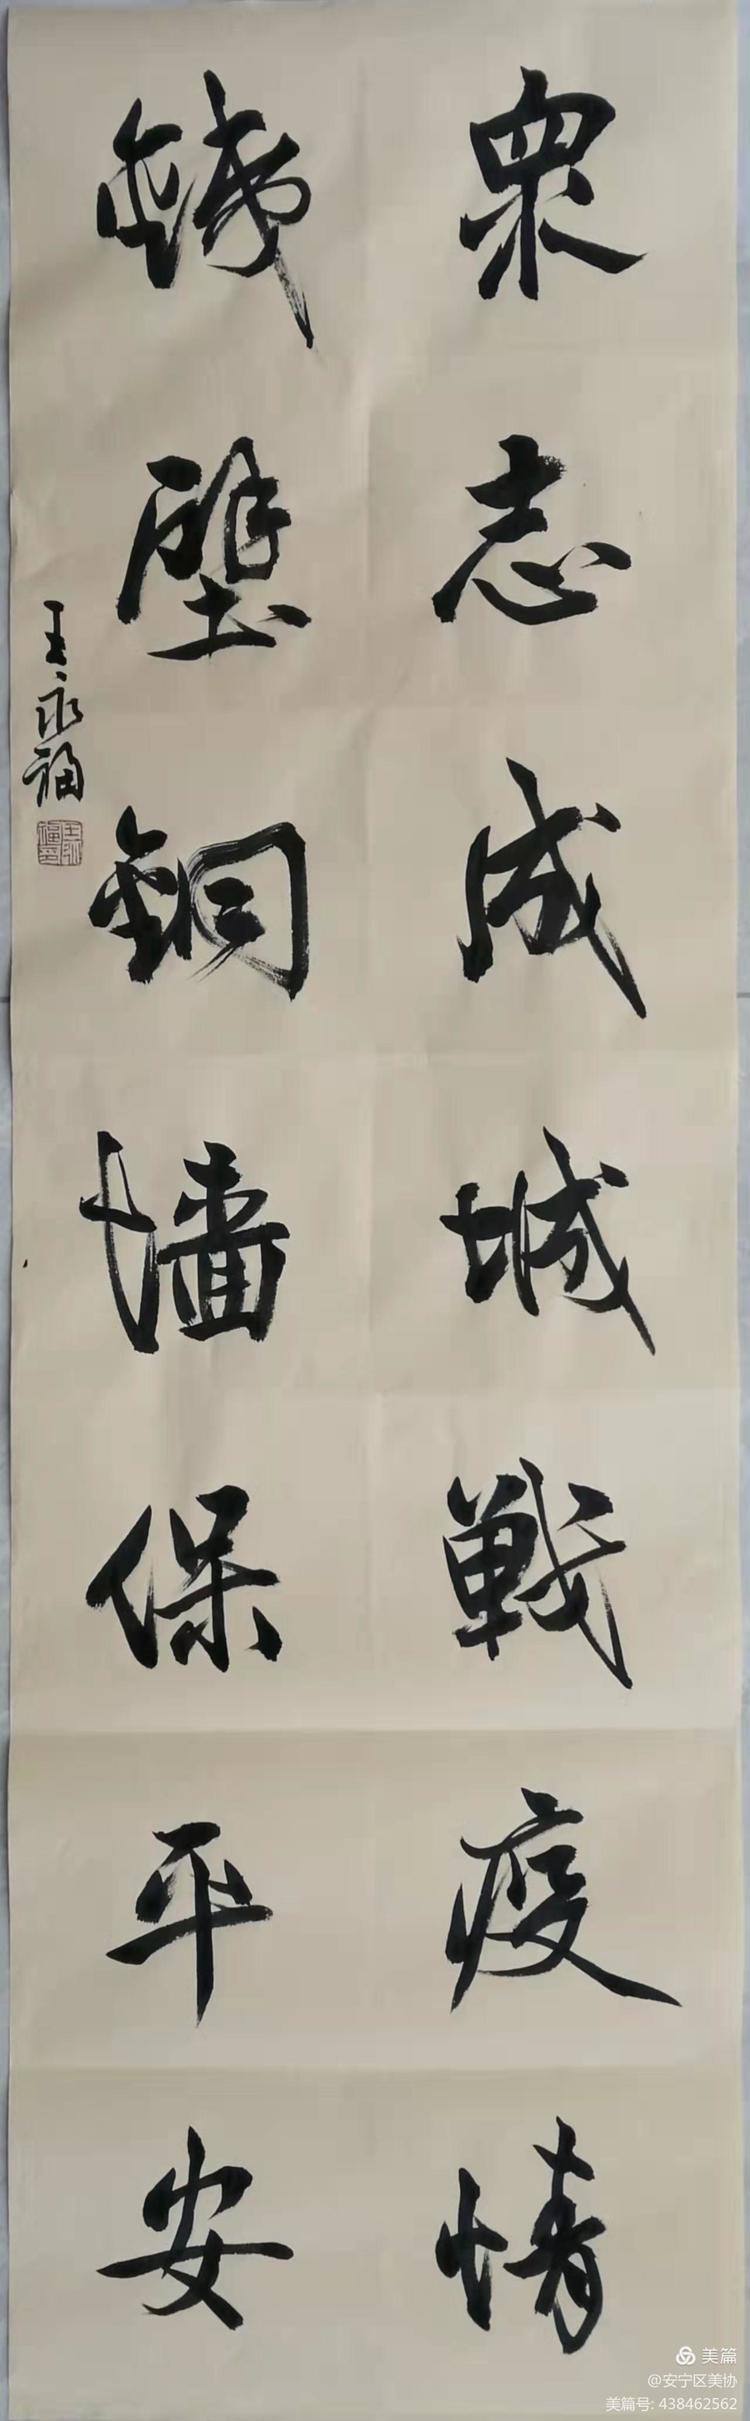 眾志成城戰疫情
鐵壁銅墻保平安
王永福
王永福印
美篇
@安宁区美协
美篇号: 438462562